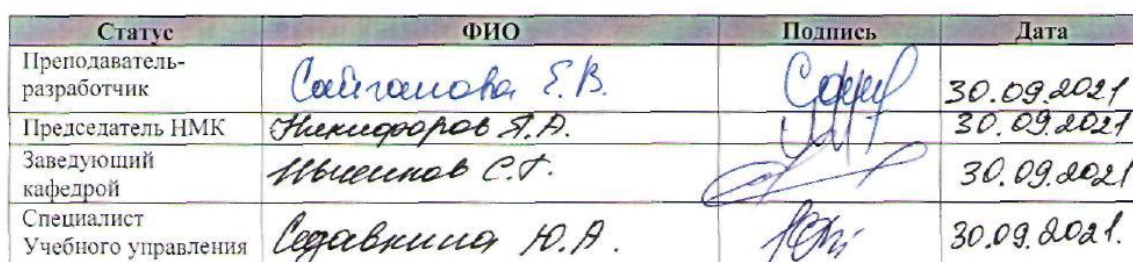 Статус ФИО Подпись Дата
Преподаватель-
разработчик Сайганова Е.В. 30.09.2021
Председатель НМК Никифоров Я.А. 30.09.2021
Заведующий
кафедрой С.Г. 30.09.2021
Специалист
Учебного управления Седавкина Ю.А. 30.09.2021.